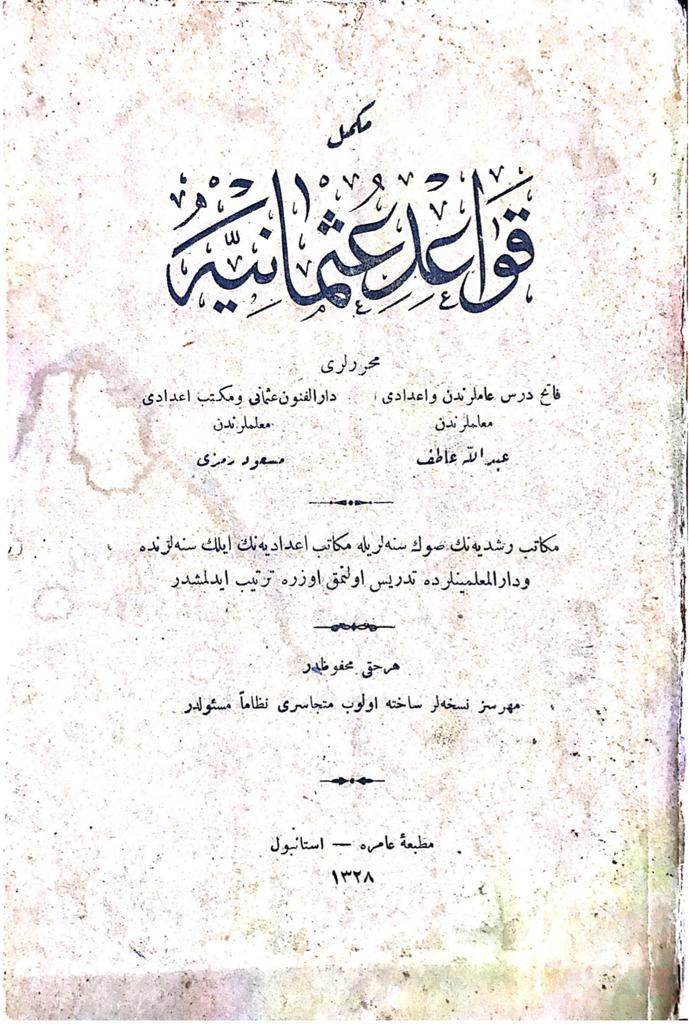 مكمل
قَوَاعِدِ عُثْمَانِيَّه
محررلری
فاتح درس عاملرندن و اعدادی
معلملرندن
عبد الله عاطف
دارالفنون عثمانی و مكتب اعدادی
معلملرندن
مسعود رمزی
مكاتب رشدیه‌نك صوك سنه‌لریله مكاتب اعدادیه‌نك ایلك سنه‌لرنده
ودارالمعلمینلرده تدریس اولنمق اوزره ترتیب ایدلمشدر
هر حقی محفوظدر
مهرسز نسخه‌لر ساخته اولوب متجاسری نظاماً مسئولدر
مطبعهٔ عامره — استانبول
١٣٢٨